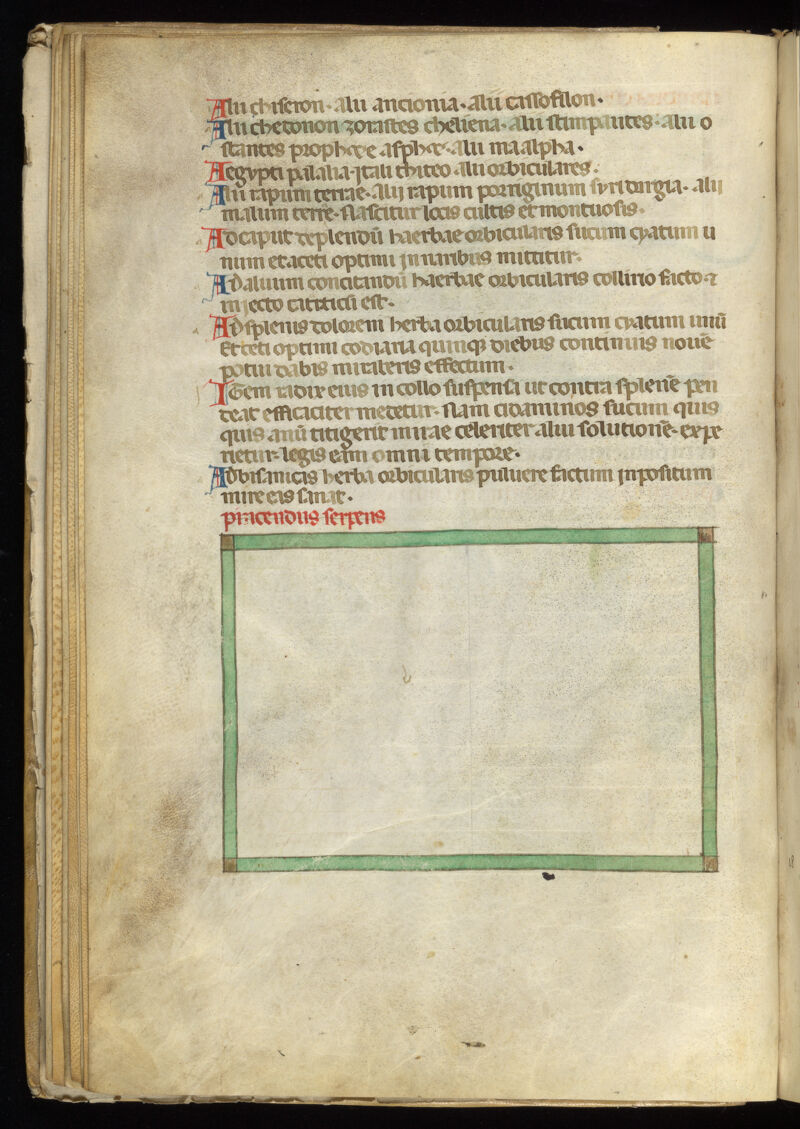 Alii chiseron · alii ancionia · alii cassofilon ·
Alii chetonon zorastes cheliena · alii stimpantes · alii o
stantes prophete asphe · alii maalpha ·
Aegypti palalia · jtali thiteo · alii orbiculares ·
Alii rapum terrae · alij rapum porriginum siriturgia · alij
malum terre · Nascitur locis cultis et montuosis ·
Ad caput deplendū haerbae orbicularis sucum cyatum u
num et aceti optimi jn naribus mittitur ·
Ad aluum concitandū haerbae orbicularis collirio facto ⁊
iniecto est ·
Ad splenis dolorem herba orbicularis sucum cyatum unū
Et ceti optimi codiaria quinqꝫ diebus continuis nouē
potui dabis miraberis effectum ·
Item radix eius in collo suspensa ut contra splenē pen
deat efficaciter medetur · Nam ciclaminos sucum quis
quis anū titigerit mirae celeriter alui solutionē · expe
rietur · legis eam omni tempore ·
Ad bisanicas herba orbicularis puluere factum jnpositum
mire eis sanat ·
pracendus serpens